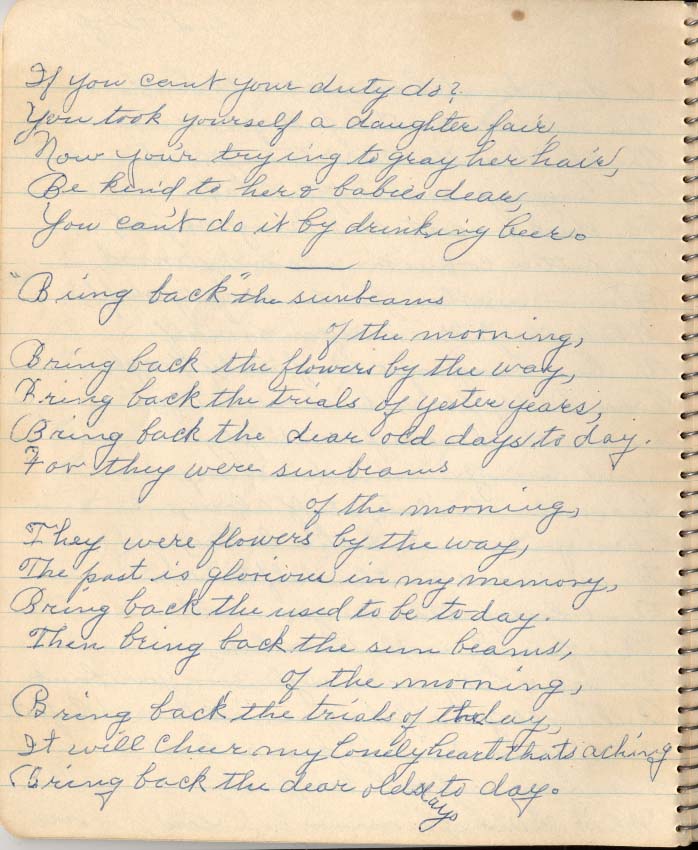 If you cant your duty do?
You took yourself a daughter fair
Now your trying to gray her hair,
Be kind to her & babies dear,
You can't do it by drinking beer.
"Bring back" the sunbeams
of the morning,
Bring back the flowers by the way,
Bring back the trials of yester years,
Bring back the dear old days to day.
For they were sunbeams
of the morning,
They were flowers by the way,
The past is glorious in my memory,
Bring back the used to be today.
Then bring back the sun beams,
of the morning,
Bring back the trials of the day,
It will cheer my lonely heart thats aching
Bring back the dear old days to day.